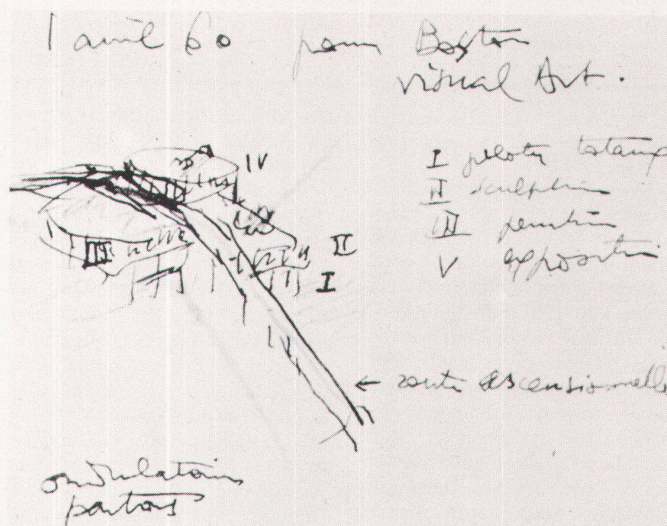 1 avril 60 pour Boston
visual Art.
IV
I pilotis
II sculpture
III peinture
V exposition
III
II
I
← route ascensionnelle
ondulatoires
partout